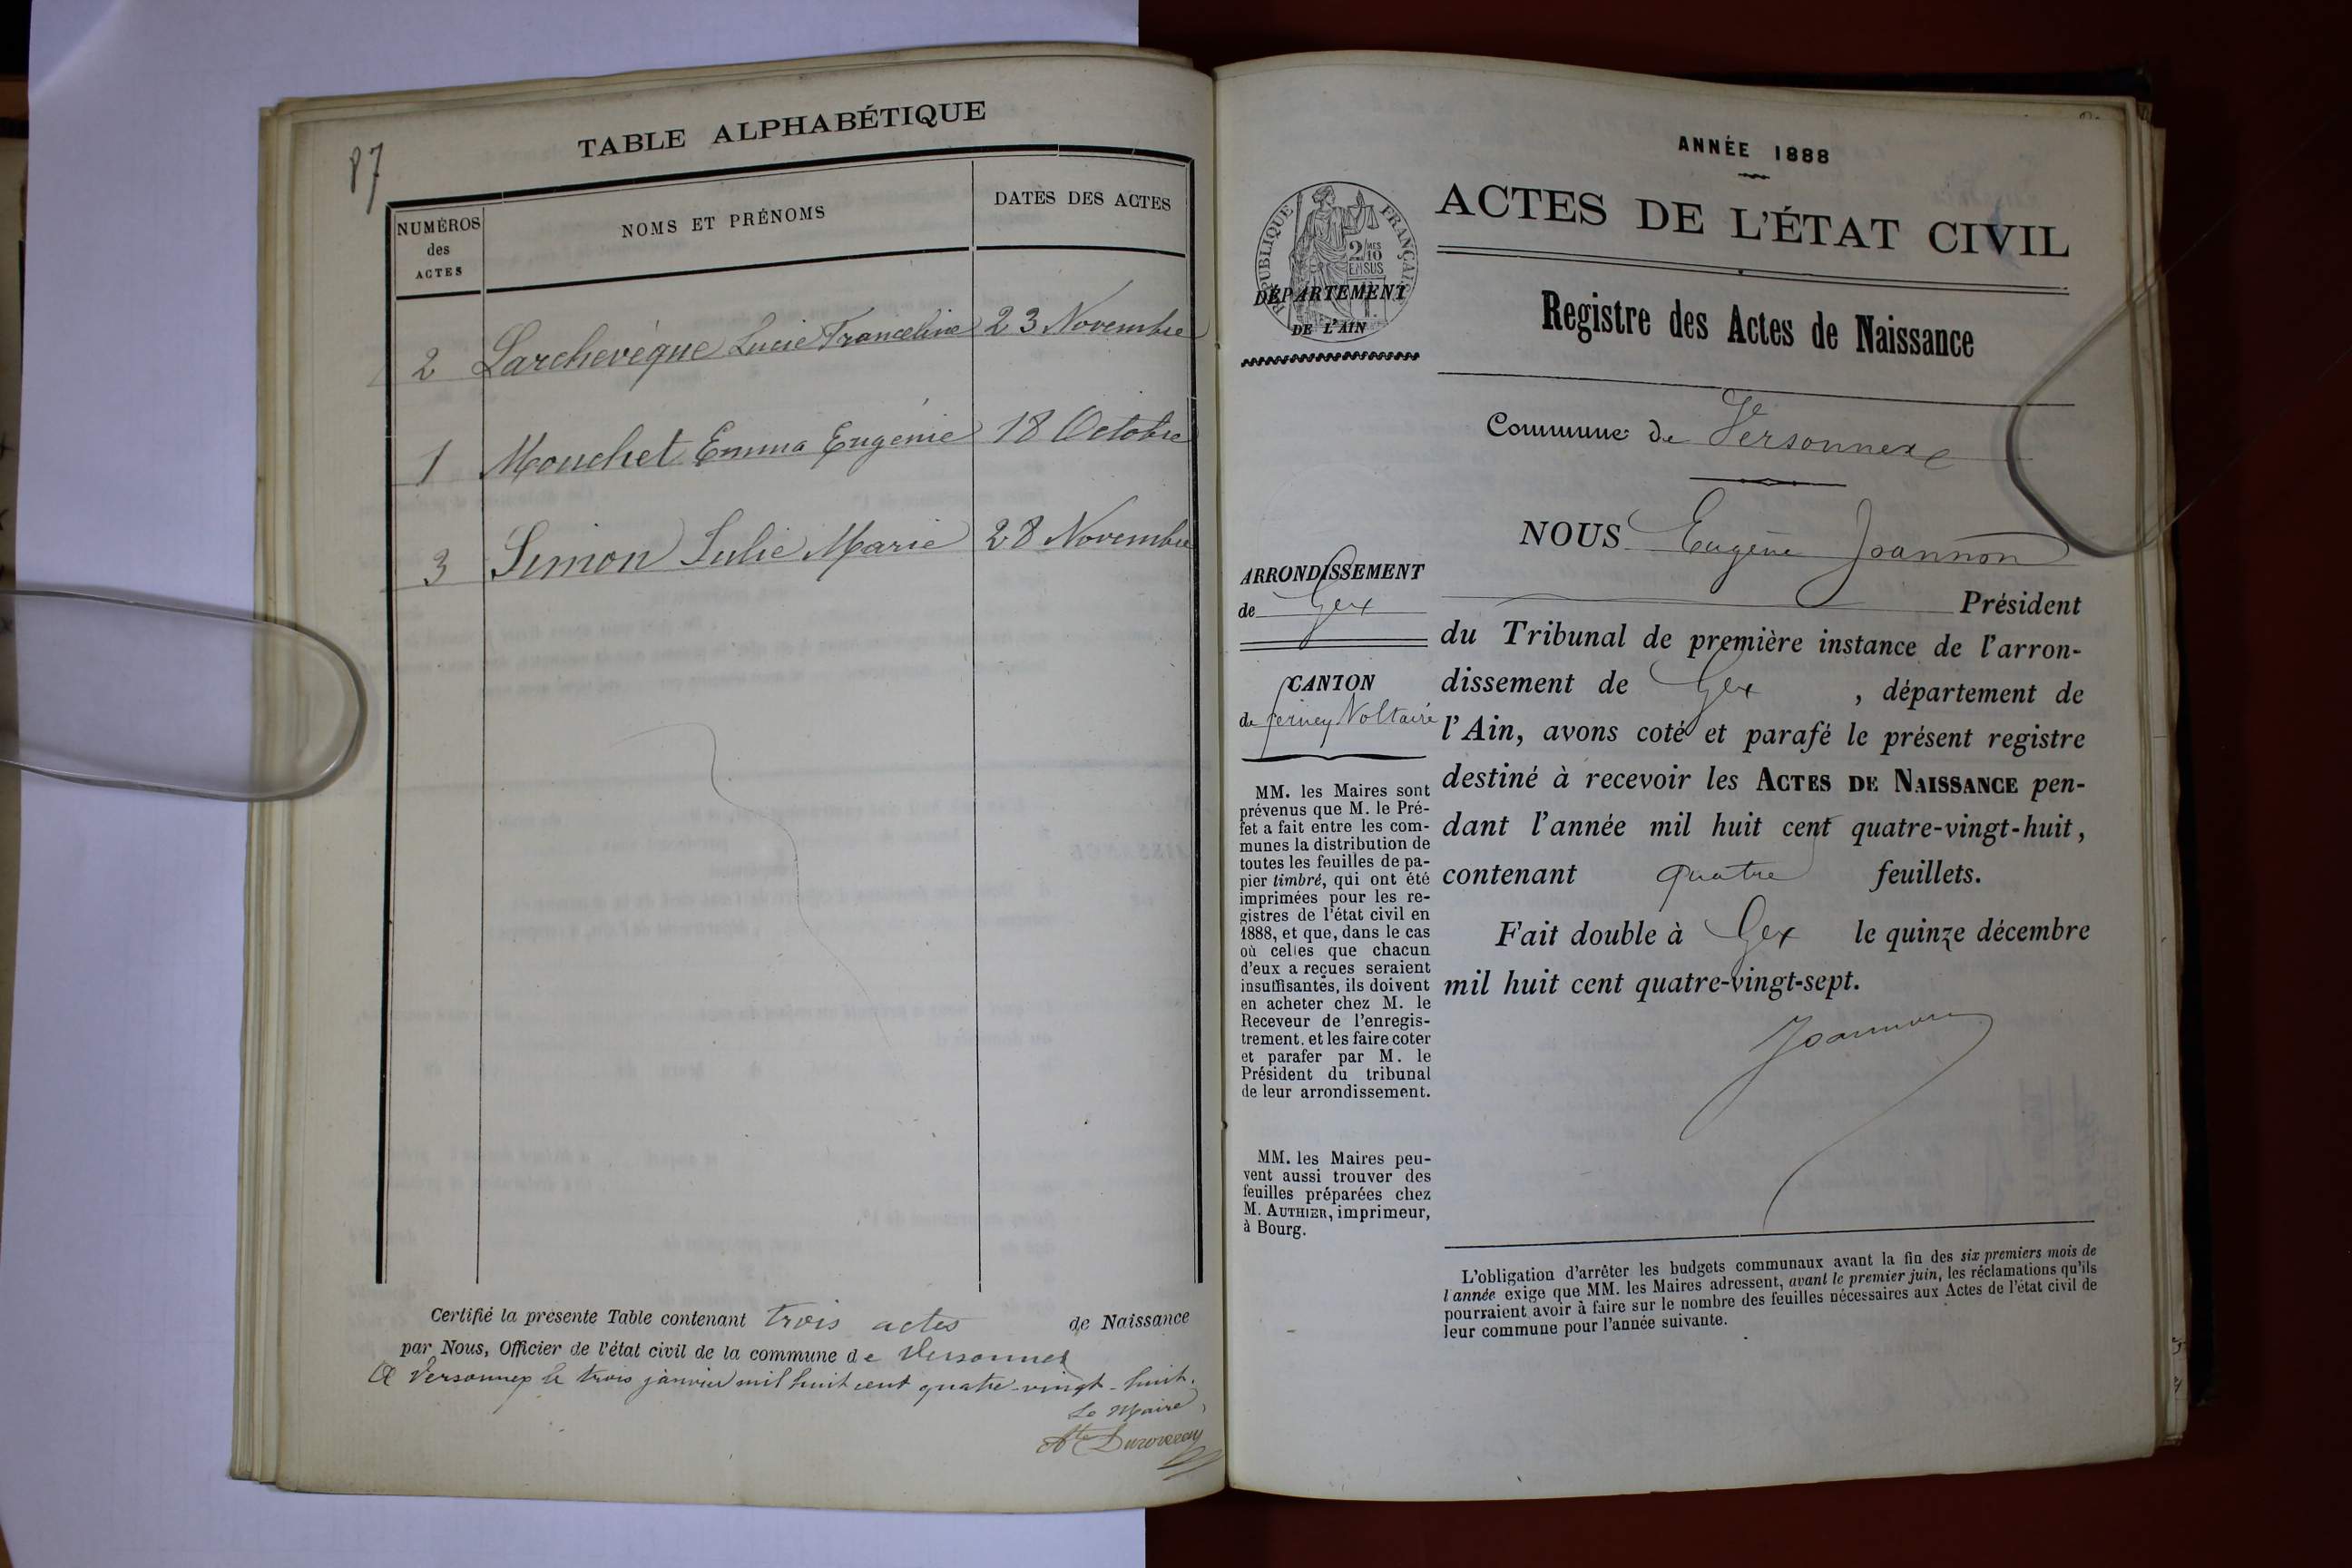 87
TABLE ALPHABÉTIQUE
NUMÉROS
des
ACTES
NOMS ET PRÉNOMS
DATES DES ACTES
2 Larchevêque Lucie Franceline 23 Novembre
1 Mouchet Emma Eugénie 18 Octobre
3 Simon Julie Marie 28 Novembre
Certifié la présente Table contenant trois actes de Naissance
par Nous, Officier de l'état civil de la commune de Versonnex
A Versonnex le trois janvier mil huit cent quatre-vingt-huit.
Le Maire,
ANNÉE 1888
ACTES DE L'ÉTAT CIVIL
RÉPUBLIQUE FRANÇAISE
2/10
EN SUS
DÉPARTEMENT
DE L'AIN
Registre des Actes de Naissance
Commune de Versonnex
ARRONDISSEMENT
de Gex
CANTON
de Ferney Voltaire
MM. les Maires sont
prévenus que M. le Pré-
fet a fait entre les com-
munes la distribution de
toutes les feuilles de pa-
pier timbré, qui ont été
imprimées pour les re-
gistres de l'état civil en
1888, et que, dans le cas
où celles que chacun
d'eux a reçues seraient
insuffisantes, ils doivent
en acheter chez M. le
Receveur de l'enregis-
trement, et les faire coter
et parafer par M. le
Président du tribunal
de leur arrondissement.
MM. les Maires peu-
vent aussi trouver des
feuilles préparées chez
M. AUTHIER, imprimeur,
à Bourg.
NOUS Eugène Joannon
Président
du Tribunal de première instance de l'arron-
dissement de Gex , département de
l'Ain, avons coté et parafé le présent registre
destiné à recevoir les ACTES DE NAISSANCE pen-
dant l'année mil huit cent quatre-vingt-huit,
contenant quatre feuillets.
Fait double à Gex le quinze décembre
mil huit cent quatre-vingt-sept.
Joannon
L'obligation d'arrêter les budgets communaux avant la fin des six premiers mois de
l'année exige que MM. les Maires adressent, avant le premier juin, les réclamations qu'ils
pourraient avoir à faire sur le nombre des feuilles nécessaires aux Actes de l'état civil de
leur commune pour l'année suivante.